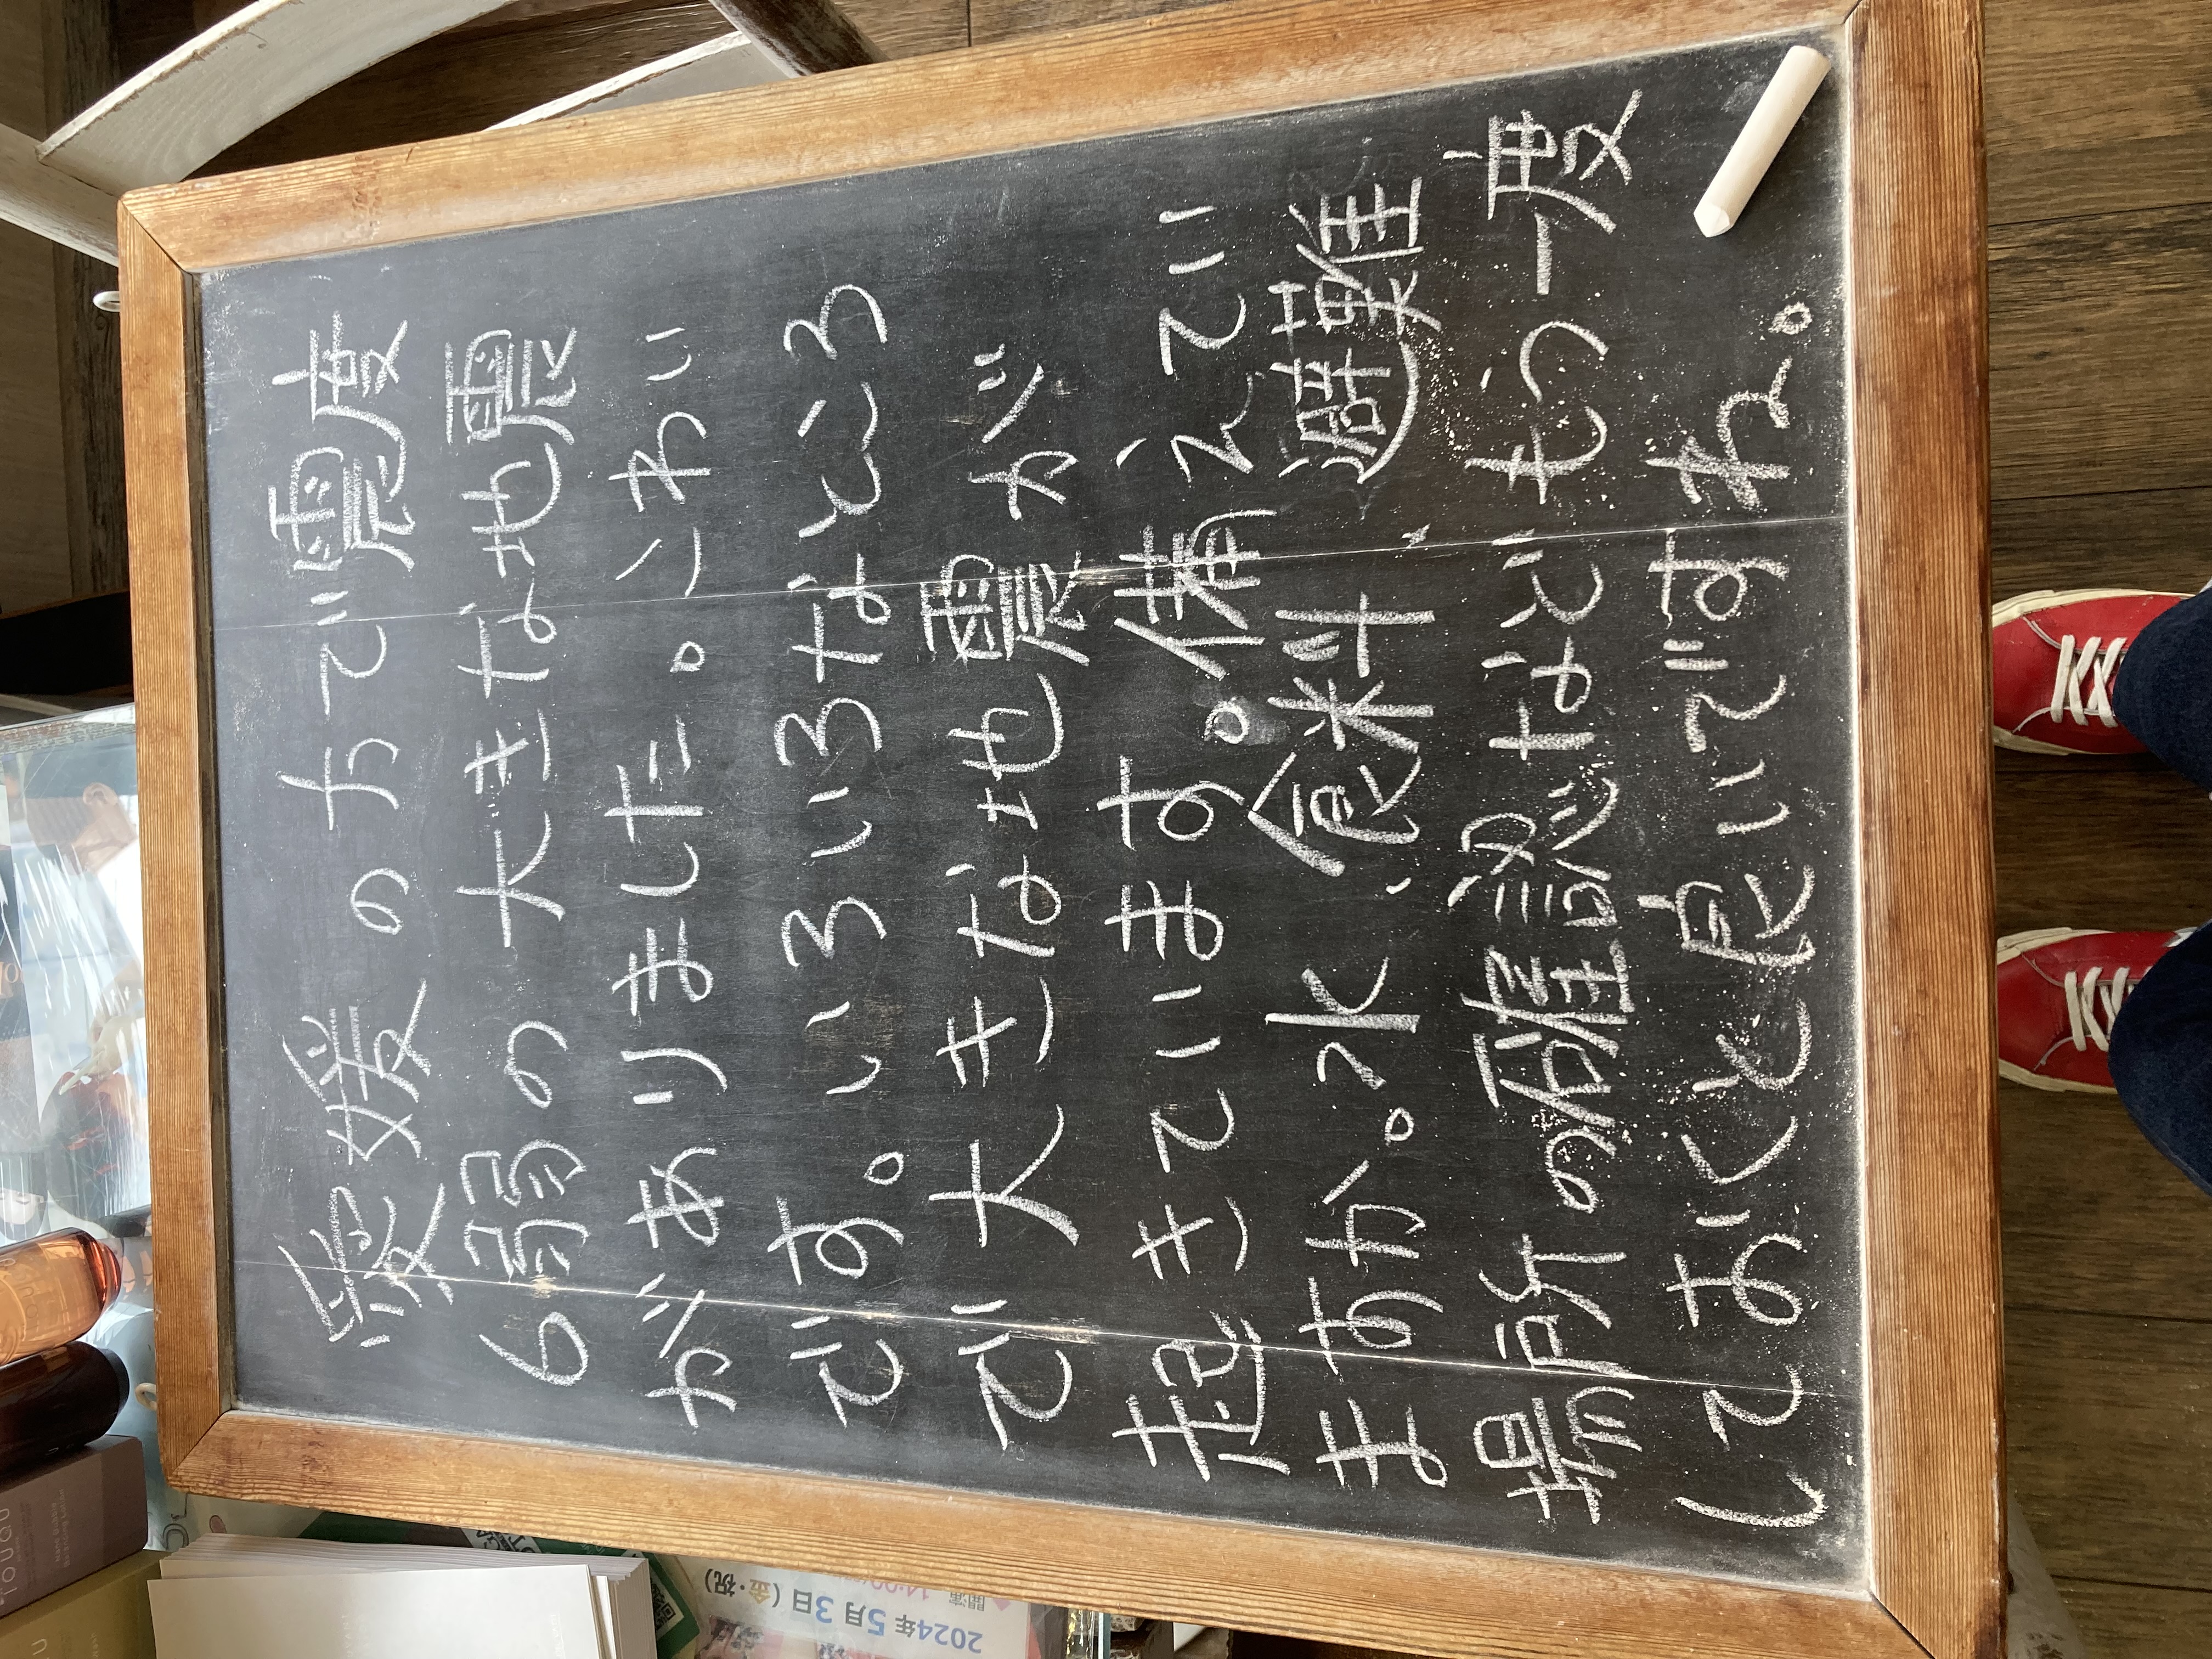 愛媛の方で震度
6弱の大きな地震
がありました。こわい
です。いろいろなところ
で大きな地震が
起きています。備えてい
ますか。水、食料、避難
場所の確認などもう一度
しておくと良いですね。
2024年5月3日(金・祝)